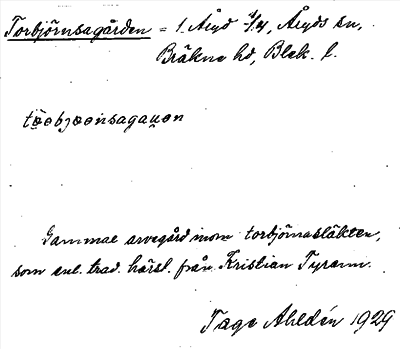 Torbjörnsagården = 1 Åryd 1/4, Åryds sn,
Bräkne hd, Blek. l.
Gammal arvegård inom torbjörnasläkten,
som enl. trad. härst. från Kristian Tyrann.
Tage Ahldén 1929